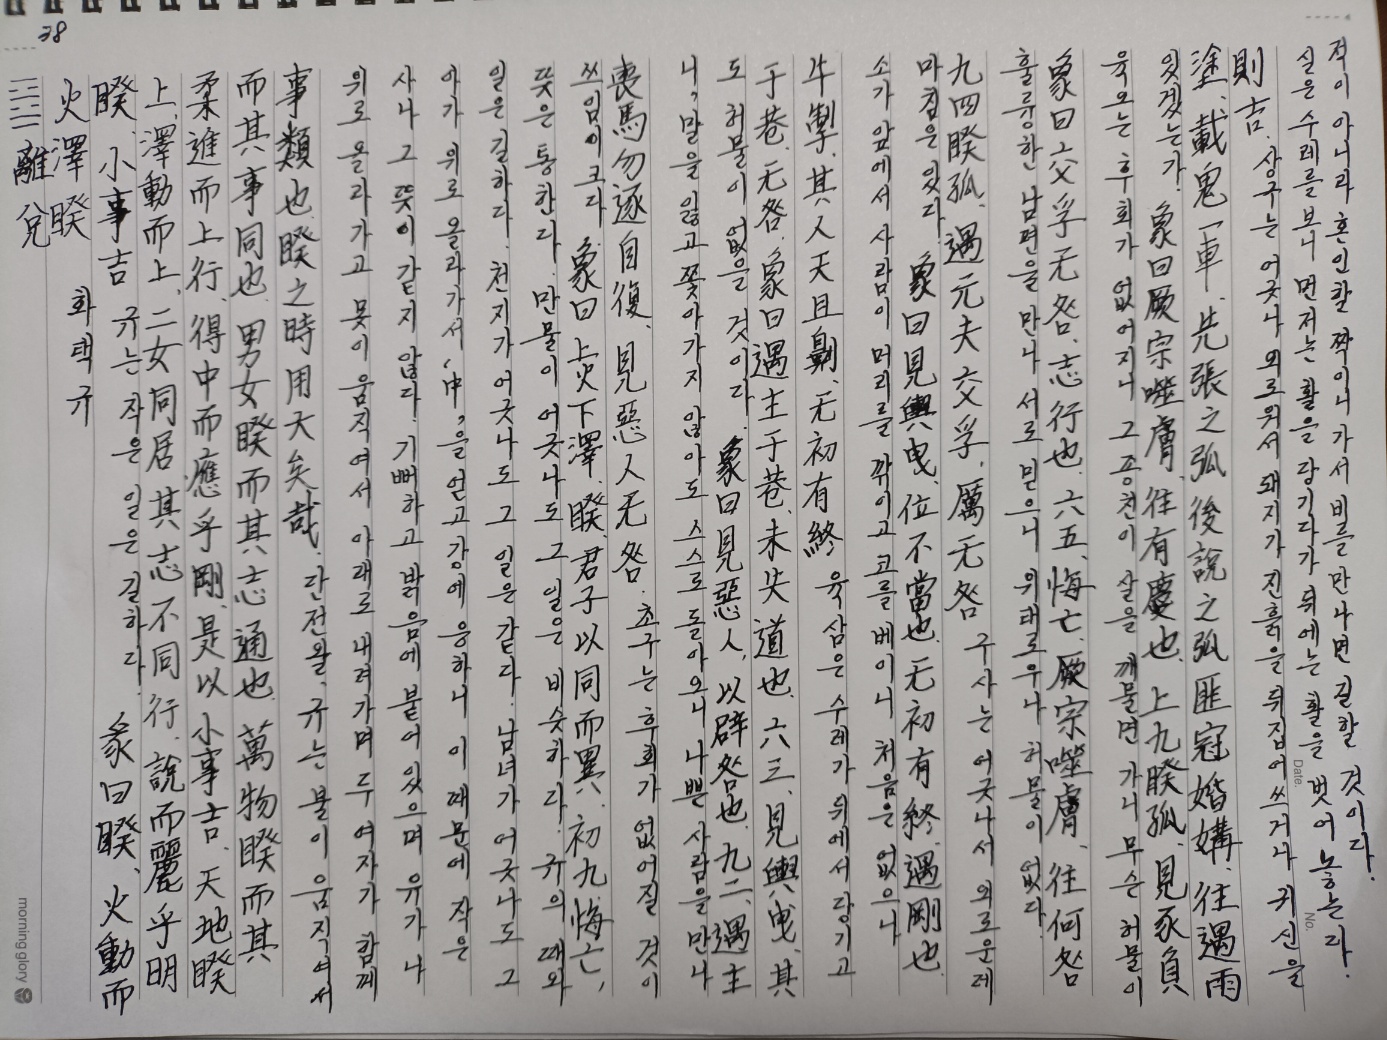 38
䷥ 離兌
火澤睽 화택규
睽, 小事吉 규는 작은 일은 길하다. 彖曰睽, 火動而
上, 澤動而上, 二女同居 其志不同行. 說而麗乎明
柔進而上行, 得中而應乎剛. 是以小事吉. 天地睽
而其事同也. 男女睽而其志通也. 萬物睽而其
事類也. 睽之時用大矣哉. 단전왈, 규는 불이 움직여서
위로 올라가고 못이 움직여서 아래로 내려가며 두 여자가 함께
사나 그 뜻이 같지 않다. 기뻐하고 밝음에 붙어 있으며 유가 나
아가 위로 올라가서 '中'을 얻고 강에 응하니 이 때문에 작은
일은 길하다. 천지가 어긋나도 그 일은 같다. 남녀가 어긋나도 그
뜻은 통한다. 만물이 어긋나도 그 일은 비슷하다. 규의 때와
쓰임이 크다 象曰 上火下澤睽. 君子以同而異. 初九悔亡,
喪馬勿逐自復, 見惡人无咎. 초구는 후회가 없어질 것이
니, 말을 잃고 쫓아가지 않아도 스스로 돌아오니 나쁜 사람을 만나
도 허물이 없을 것이다. 象曰見惡人, 以辟咎也. 九二, 遇主
于巷. 无咎. 象曰遇主于巷. 未失道也. 六三, 見輿曳. 其
牛掣. 其人天且劓. 无初有終 육삼은 수레가 뒤에서 당기고
소가 앞에서 사람이 머리를 깎이고 코를 베이니 처음은 없으나
마침은 있다. 象曰見輿曳, 位不當也. 无初有終, 遇剛也
九四睽孤, 遇元夫 交孚, 厲无咎 구사는 어긋나서 외로운데
훌륭한 남편을 만나 서로 믿으니 위태로우나 허물이 없다.
象曰交孚无咎, 志行也. 六五, 悔亡. 厥宗噬膚, 往何咎
육오는 후회가 없어지니 그 종친이 살을 깨물면 가니 무슨 허물이
있겠는가. 象曰厥宗噬膚, 往有慶也. 上九睽孤, 見豕負
塗, 載鬼一車. 先張之弧 後說之弧 匪寇婚媾. 往遇雨
則吉. 상구는 어긋나 외로워서 돼지가 진흙을 뒤집어 쓰거나 귀신을
실은 수레를 보니 먼저는 활을 당기다가 뒤에는 활을 벗어 놓는다.
적이 아니라 혼인할 짝이니 가서 비를 만나면 길할 것이다.
Date.
No.
morning glory